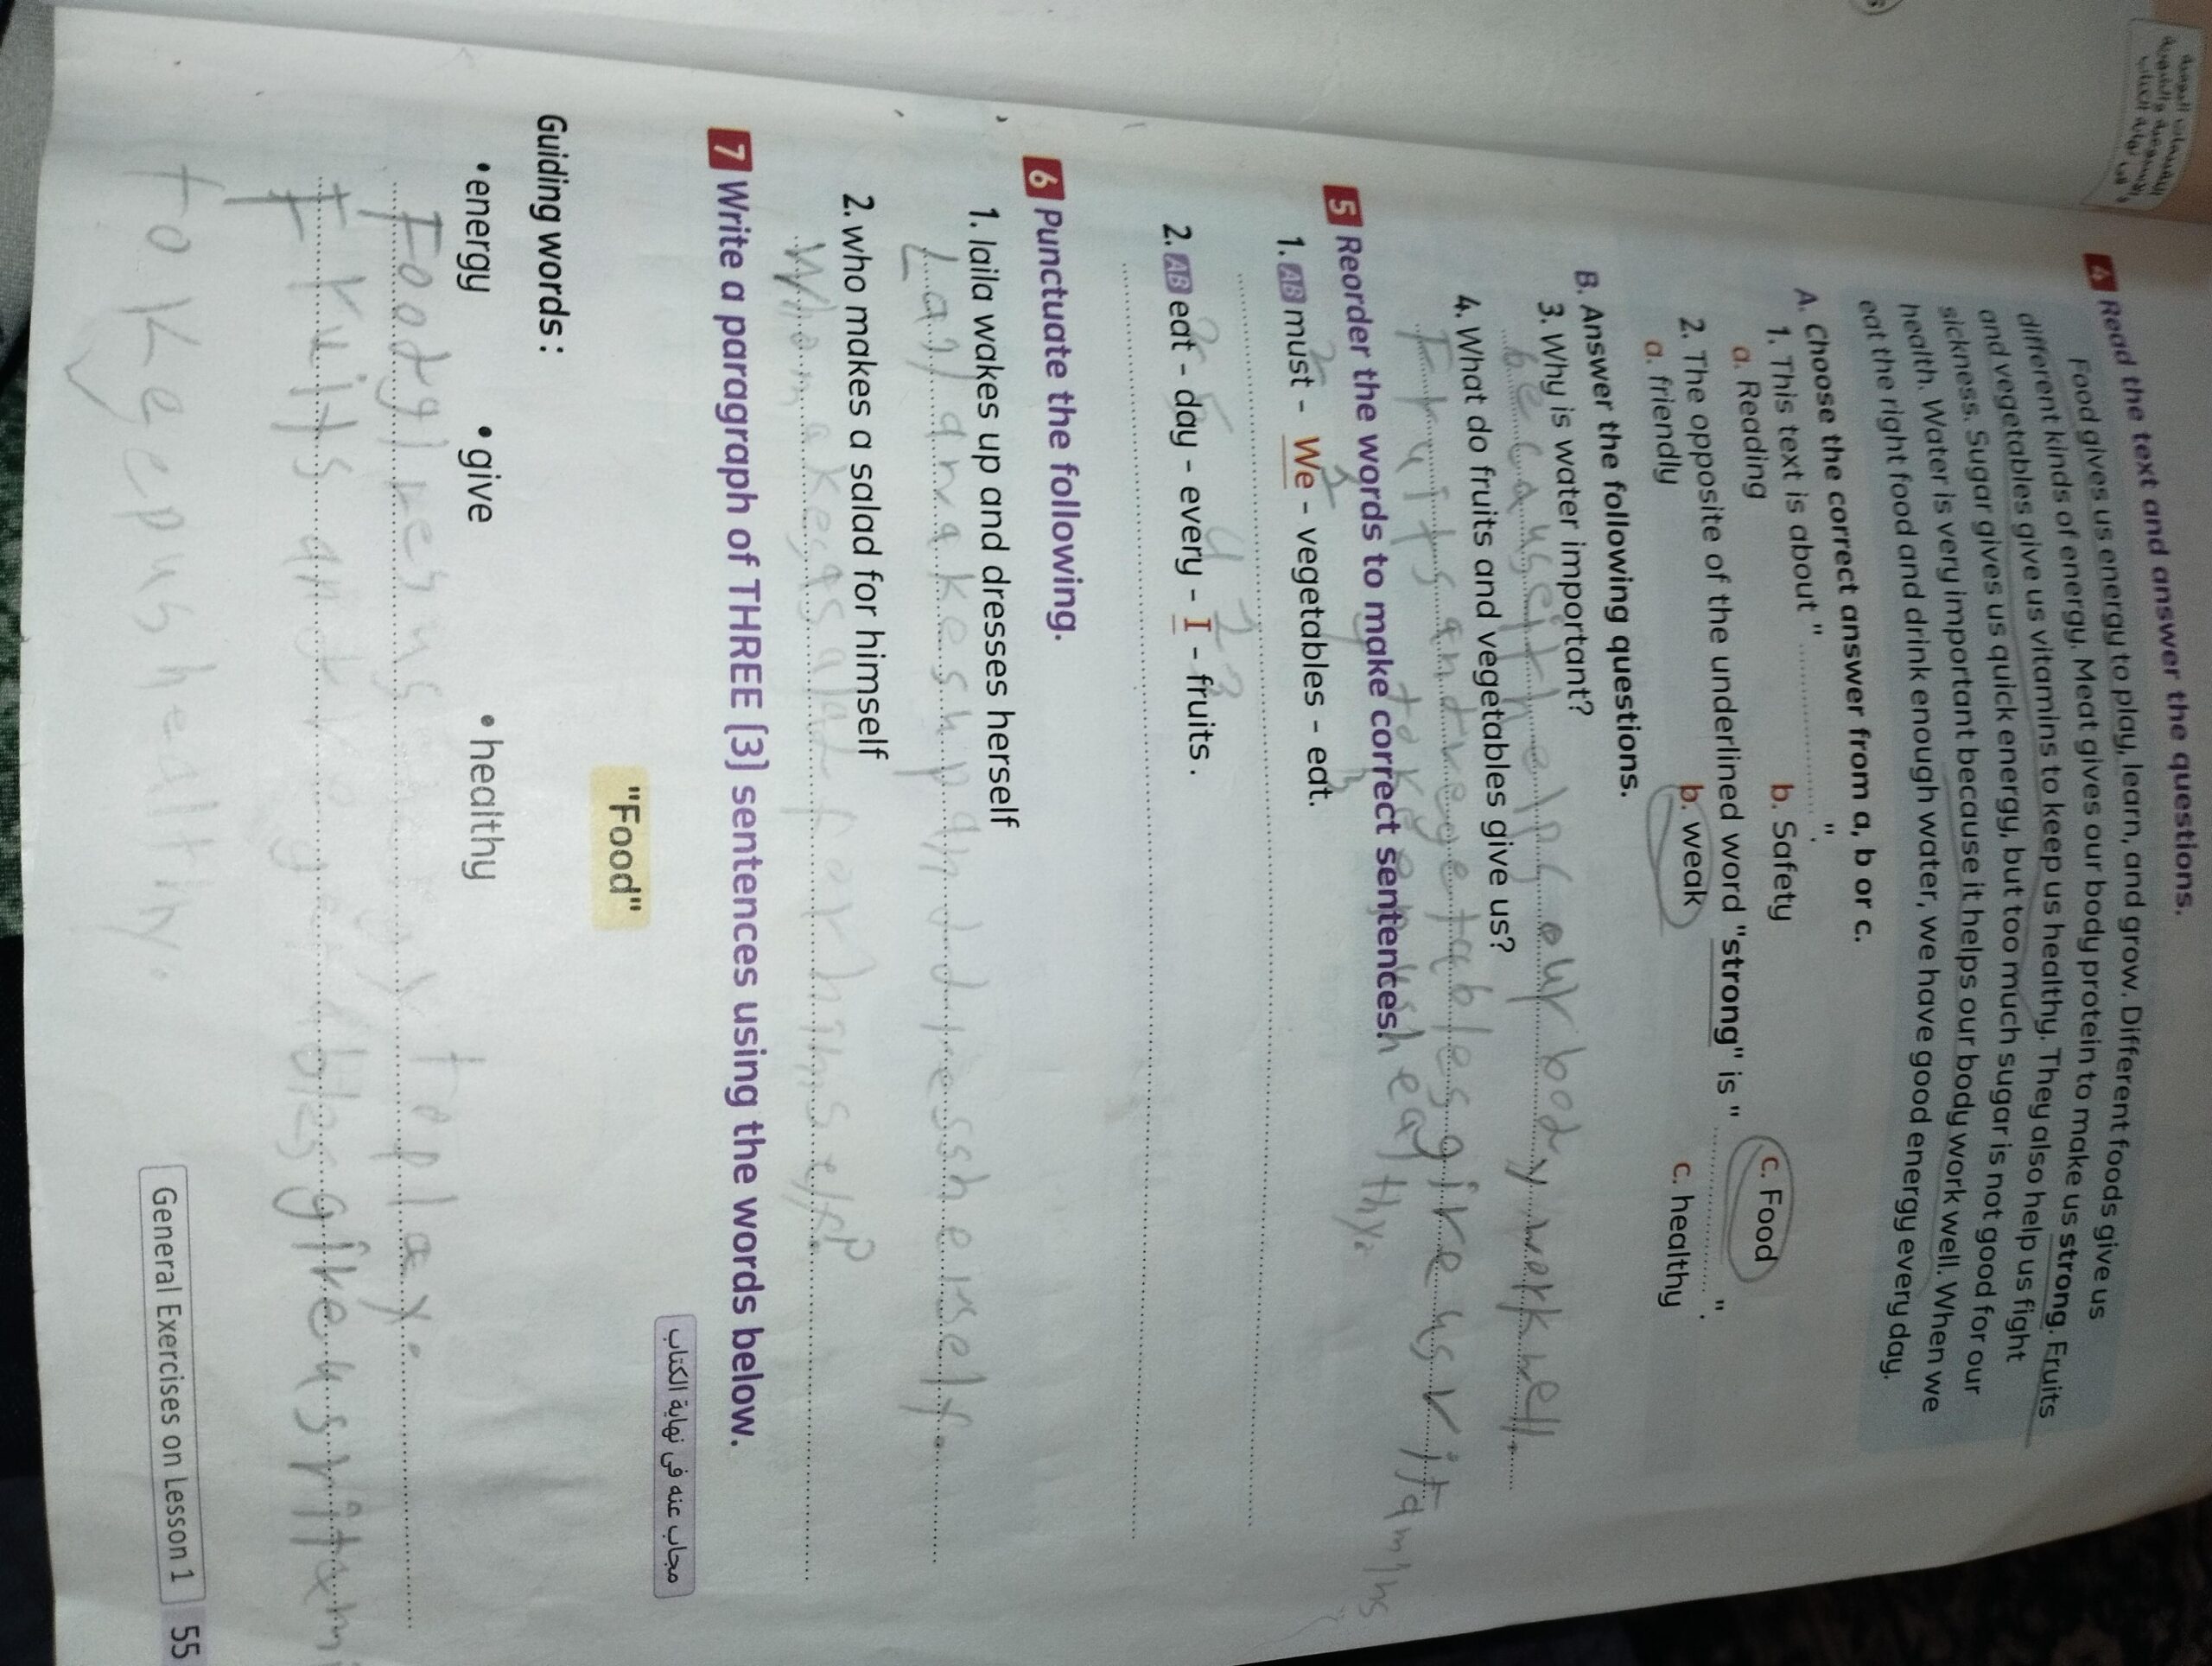 4 Read the text and answer the questions.
Food gives us energy to play, learn, and grow. Different foods give us
different kinds of energy. Meat gives our body protein to make us strong. Fruits
and vegetables give us vitamins to keep us healthy. They also help us fight
sickness. Sugar gives us quick energy, but too much sugar is not good for our
health. Water is very important because it helps our body work well. When we
eat the right food and drink enough water, we have good energy every day.
A. Choose the correct answer from a, b or c.
1. This text is about " .................... ".
a. Reading b. Safety c. Food
2. The opposite of the underlined word "strong" is " .................... ".
a. friendly b. weak c. healthy
B. Answer the following questions.
3. Why is water important?
because it helps our body work well.
4. What do fruits and vegetables give us?
Fruits and vegetables give us vitamins
to keep us healthy.
5 Reorder the words to make correct sentences.
2 1 4 3
1. AB must - We - vegetables - eat.
2 5 4 1 3
2. AB eat - day - every - I - fruits .
6 Punctuate the following.
1. laila wakes up and dresses herself
Laila wakes up and dresses herself.
2. who makes a salad for himself
Who makes a salad for himself?
7 Write a paragraph of THREE (3) sentences using the words below.
مجاب عنه فى نهاية الكتاب
"Food"
Guiding words :
• energy • give • healthy
Food gives us energy to play.
Fruits and vegetables give us vitamin
to keep us healthy.
General Exercises on Lesson 1 55